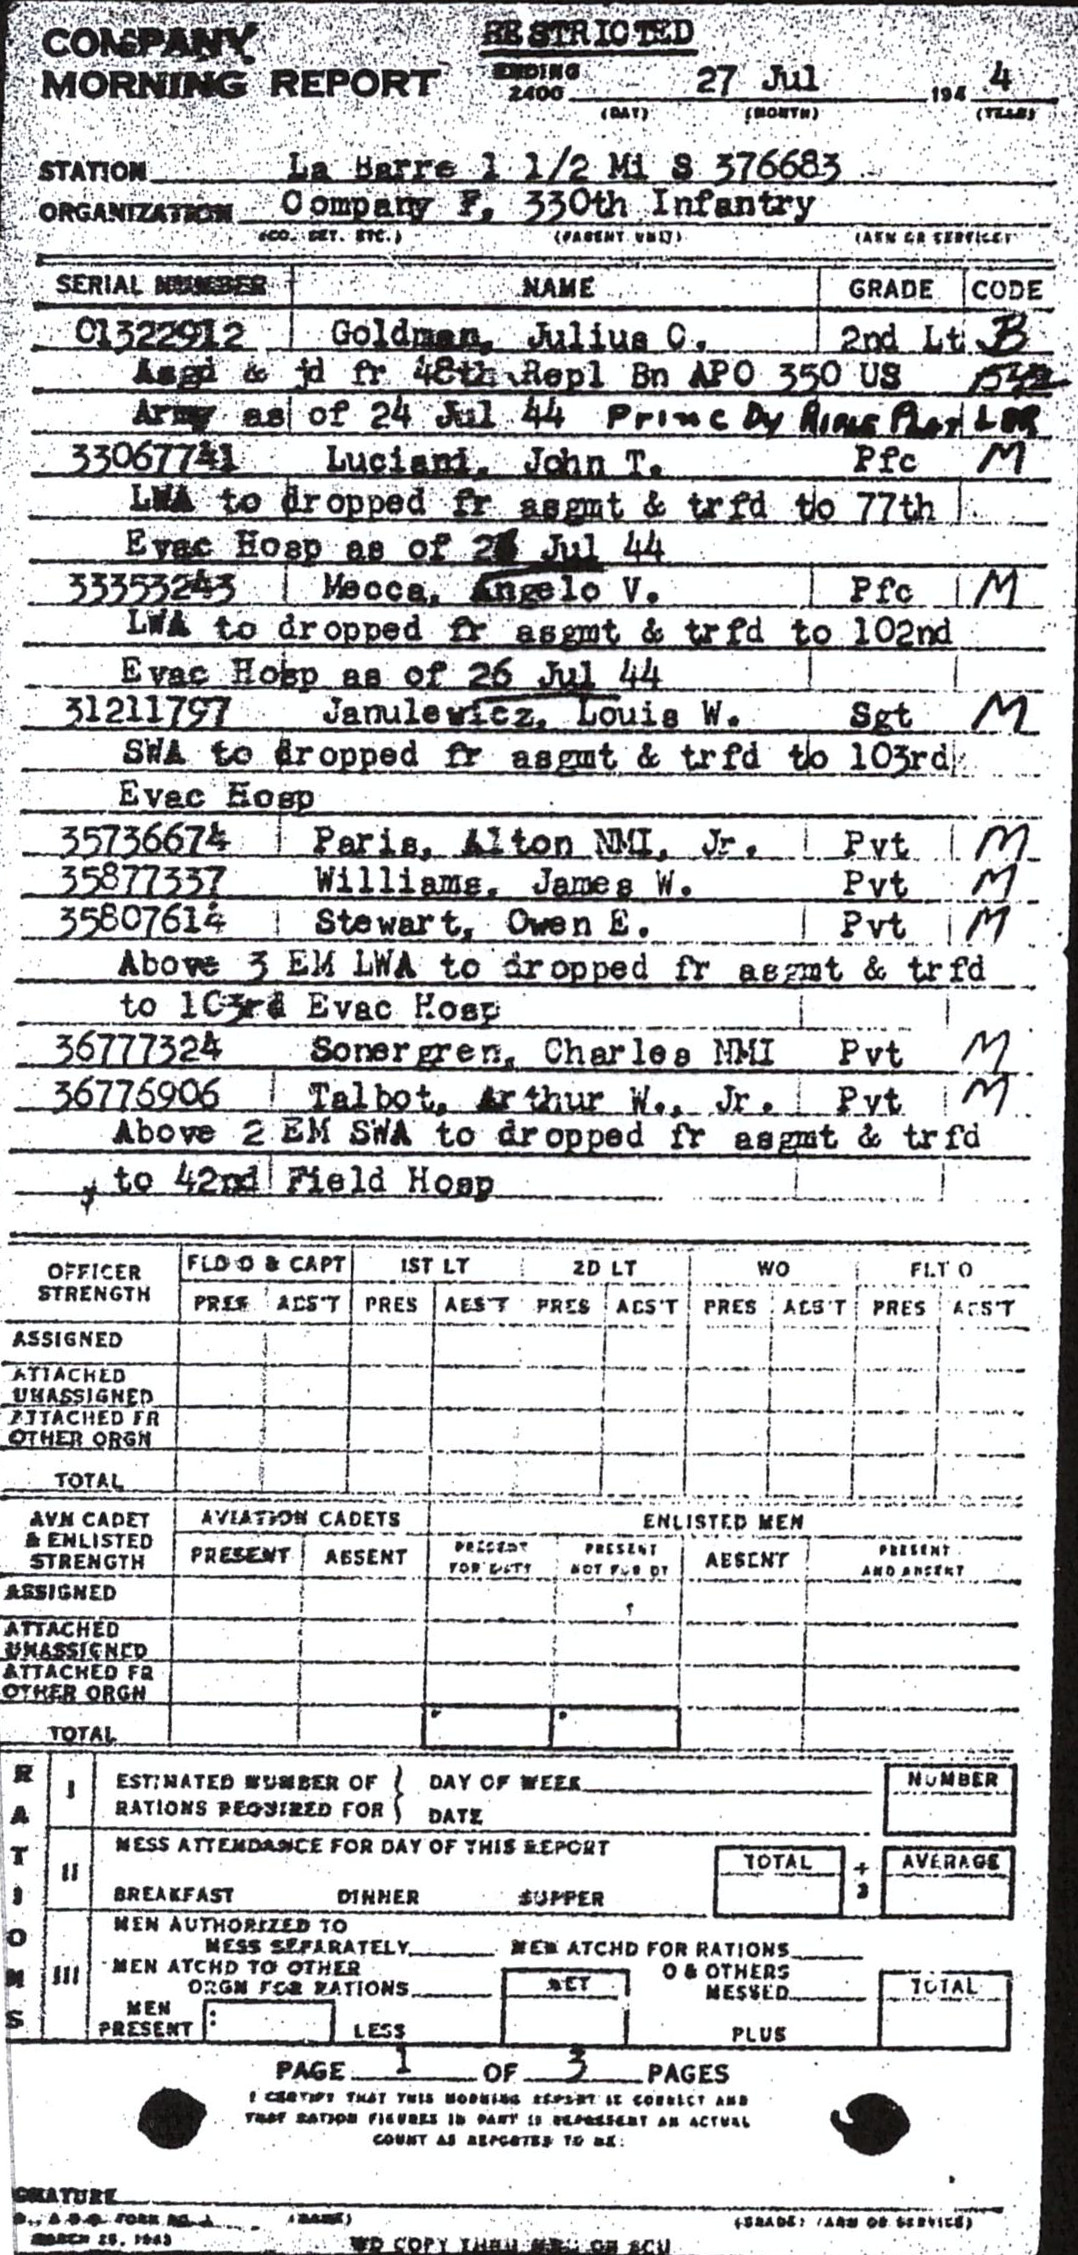 COMPANY
MORNING REPORT
RESTRICTED
ENDING
2400
27 Jul 194 4
(DAY) (MONTH) (YEAR)
STATION La Barre 1 1/2 Mi S 376683
ORGANIZATION Company F, 330th Infantry
(CO. DET. ETC.) (PARENT UNIT) (ARM OR SERVICE)
SERIAL NUMBER NAME GRADE CODE
01322912 Goldman, Julius C. 2nd Lt B
Asgd & jd fr 48th Repl Bn APO 350 US
Army as of 24 Jul 44 Princ Dy Rifle Plat LDR
33067741 Luciani, John T. Pfc M
LWA to dropped fr asgmt & trfd to 77th
Evac Hosp as of Jul 44
33353243 Mecca, Angelo V. Pfc M
LWA to dropped fr asgmt & trfd to 102nd
Evac Hosp as of 26 Jul 44
31211797 Janulewicz, Louis W. Sgt M
SWA to dropped fr asgmt & trfd to 103rd
Evac Hosp
35736674 Paris, Alton NMI, Jr. Pvt M
35877337 Williams, James W. Pvt M
35807614 Stewart, Owen E. Pvt M
Above 3 EM LWA to dropped fr asgmt & trfd
to 103rd Evac Hosp
36777324 Sonergren, Charles NMI Pvt M
36776906 Talbot, Arthur W., Jr. Pvt M
Above 2 EM SWA to dropped fr asgmt & trfd
to 42nd Field Hosp
OFFICER STRENGTH FLD O & CAPT 1ST LT 2D LT WO FLT O
PRES ABS'T PRES ABS'T PRES ABS'T PRES ABS'T PRES ABS'T
ASSIGNED
ATTACHED
UNASSIGNED
ATTACHED FR
OTHER ORGN
TOTAL
AVN CADET
& ENLISTED
STRENGTH
AVIATION CADETS ENLISTED MEN
PRESENT ABSENT PRESENT FOR DUTY PRESENT NOT FOR DY ABSENT PRESENT AND ABSENT
ASSIGNED
ATTACHED
UNASSIGNED
ATTACHED FR
OTHER ORGN
TOTAL
RATIONS
I ESTIMATED NUMBER OF DAY OF WEEK NUMBER
RATIONS REQUIRED FOR DATE
II MESS ATTENDANCE FOR DAY OF THIS REPORT
TOTAL ÷ 3 AVERAGE
BREAKFAST DINNER SUPPER
III MEN AUTHORIZED TO
MESS SEPARATELY MEN ATCHD FOR RATIONS
MEN ATCHD TO OTHER
ORGN FOR RATIONS NET O & OTHERS
MESSED TOTAL
MEN
PRESENT LESS PLUS
PAGE 1 OF 3 PAGES
I CERTIFY THAT THIS MORNING REPORT IS CORRECT AND
THAT RATION FIGURES IN PART III REPRESENT AN ACTUAL
COUNT AS REPORTED TO ME:
SIGNATURE
(NAME) (GRADE) (ARM OR SERVICE)
MARCH 25, 1943
WD COPY THRU MRU OR SCU